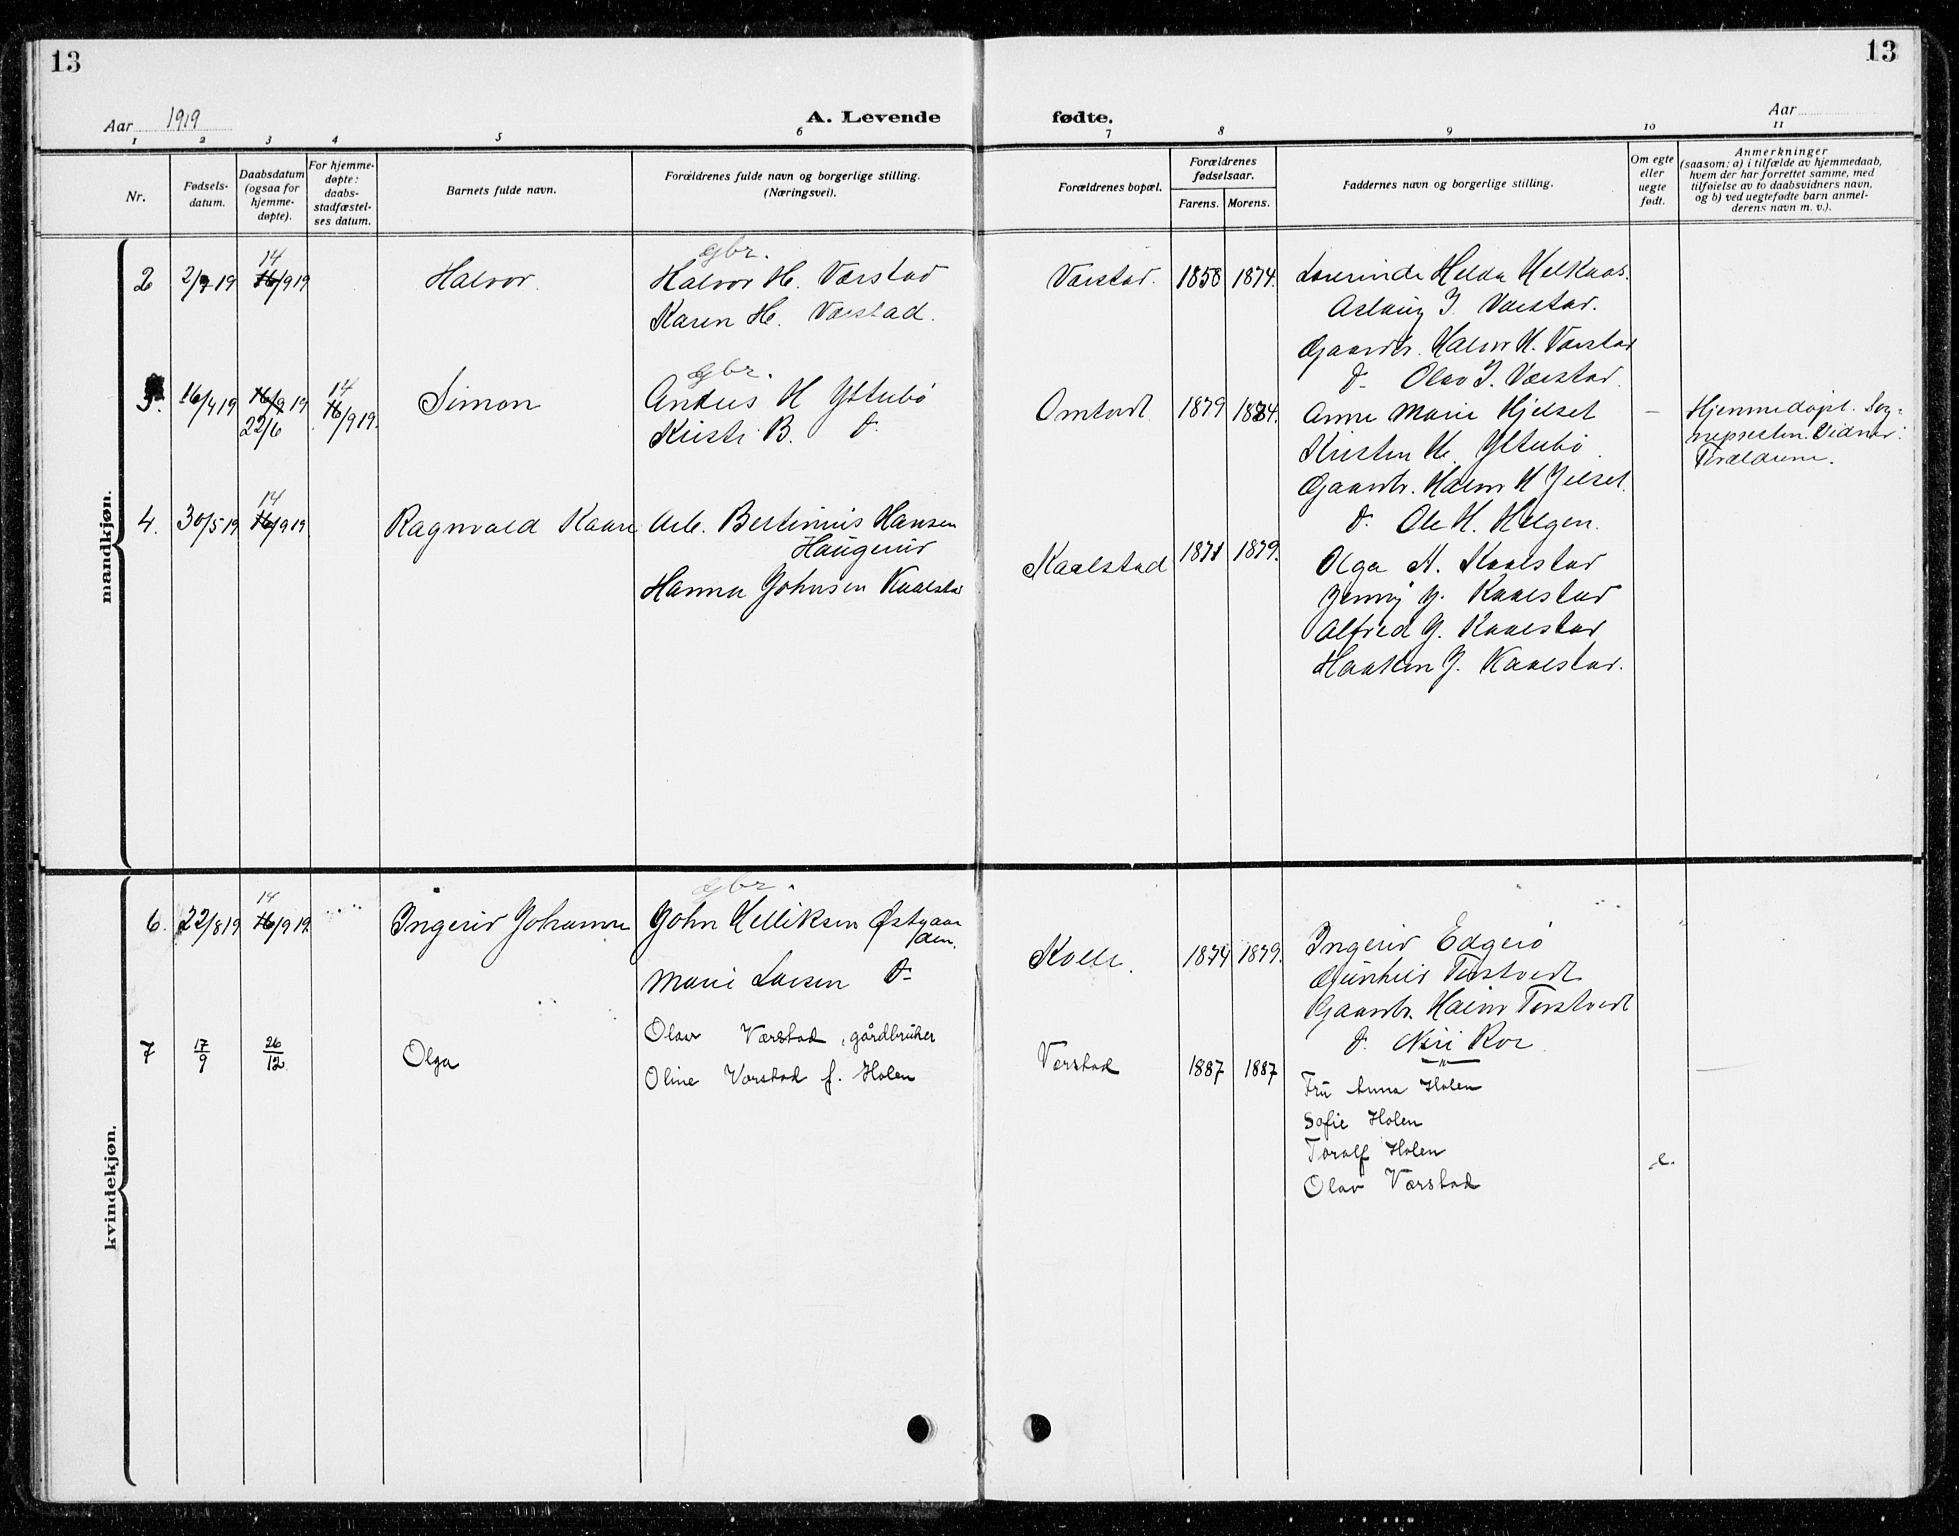 13
13
Aar 1919
A. Levende fødte.
Aar
1 2 3 4 5 6 7 8 9 10 11
Nr.
Fødsels-
datum.
Daabsdatum
(ogsaa for
hjemme-
døpte).
For hjemme-
døpte:
daabs-
stadfæstel-
ses datum.
Barnets fulde navn.
Forældrenes fulde navn og borgerlige stilling.
(Næringsvei).
Forældrenes bopæl.
Forældrenes
fødselsaar.
Farens. Morens.
Faddernes navn og borgerlige stilling.
Om egte
eller
uegte
født.
Anmerkninger
(saasom: a) i tilfælde av hjemmedaab,
hvem der har forrettet samme, med
tilføielse av to daabsvidners navn,
og b) ved uegtefødte barn anmel-
derens navn m. v.).
mandkjøn.
2 14 16/9 19 Halvor.
gbr.
Halvor H. Værstad
Karen H. Værstad.
Værstad. 1858 1874.
Helda Helkaas.
Aslaug J. Værstad.
Gaardbr. Halvor H. Værstad
d. Olav J. Værstad.
3. 16/4 19 16/9 19
22/6
14
16/9 19.
Simon
gbr.
H Ytterbø
Kristi B. d.
Omtvedt 1879 1884.
Anne Marie Hjelset
Kristen H. Ytterbø.
Gaardbr. Halvor H Jelset.
d. Ole H. Helgen.
—
Hjemmedøpt. Sog-
nepresten. Vidner:
Forældrene.
4. 30/5 19 14 16/9 19 Ragnvald Kaare
Arb. Bertinius Hansen
Haugerud
Hanna Johnsen Kaalstad
Kaalstad 1871 1879.
Olga A. Kaalstad
Jenny J. Kaalstad
Alfred J. Kaalstad
Haakon J. Kaalstad.
kvindekjøn.
6. 22/8 19 14 16/9 19 Ingerid Johanne
gbr.
John Helliksen Østgaar
den.
Marie Larsen d-
1874 1879.
Ingerid
Gunhild Torstvedt
Gaardbr. Halvor Torstvedt
d.
7 17/9 26/12 Olga
Olav Værstad, gårdbruker
Oline Værstad f. Holen
Værstad 1887 1887
Fru Anna Holen
Sofie Holen
Toralf Holen
Olav Værstad
e.